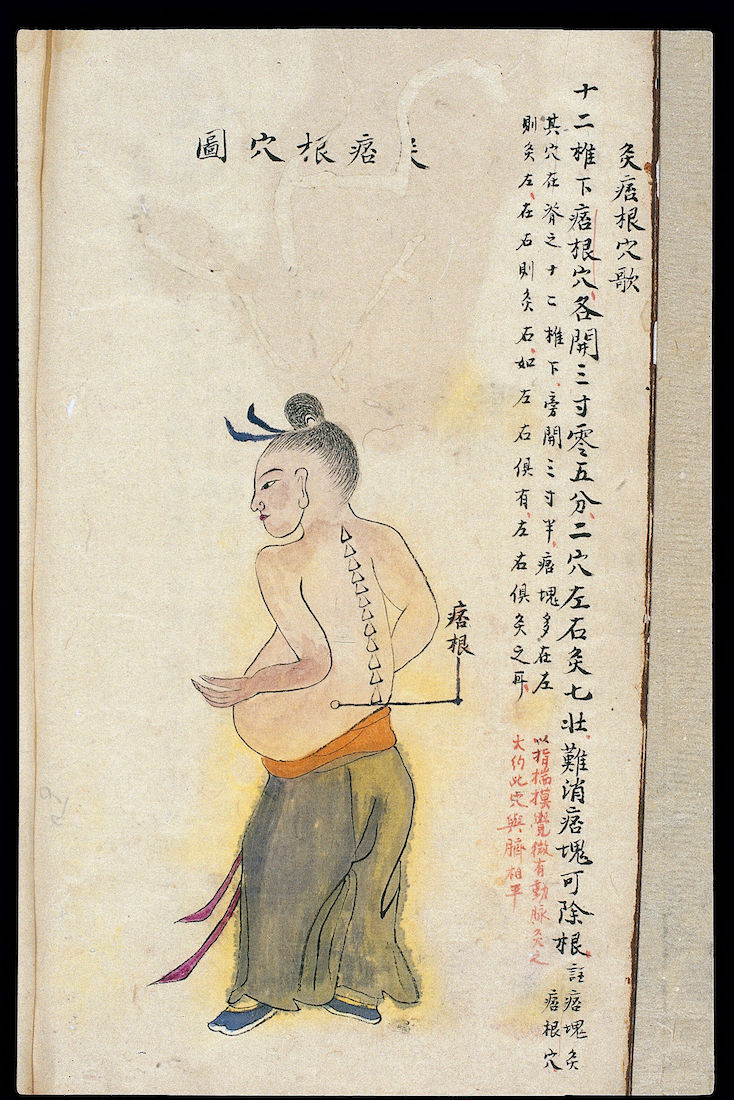 灸痞根穴歌
十二椎下痞根穴各開三寸零五分二穴左右灸七壯難消痞塊可除根
註痞塊灸
痞根穴
其穴在脊之十二椎下旁開三寸半痞塊多在左
則灸左在右則灸右如左右俱有左右俱灸之耳
以指揣摸覺微有動脉灸之
大約此穴與臍相平
痞根穴圖
痞根